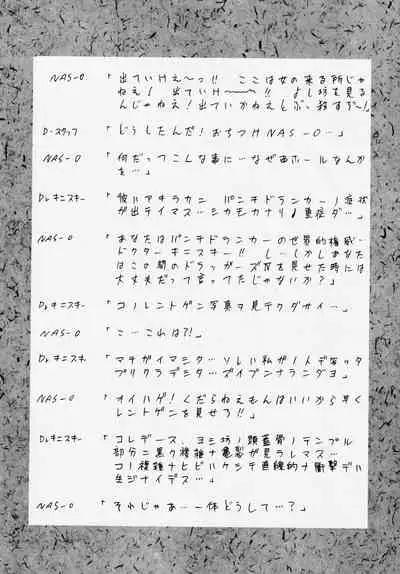 NAS-O 「出ていHえ〜っ!! ここは女の来る所じゃ
ねえ! 出ていH〜〜!! よし坊を見る
んじゃねえ!出ていかねえとぶっ殺すぞ〜!」
D-スタッフ 「どうしたんだ!おちつHNAS-O…」
NAS-O 「何だってこんな事に…なぜ西ホールなんか
を…」
Dr.キニスキー 「彼ハアキラカニ パンチドランカーノ症状
が出テイマス…シカモカナリノ重症ダ…」
NAS-O 「あなたはパンチドランカーの世界的権威…
ドクターキニスキー!! し…しかしあなた
はこの間のドラッガーズ を見せた時には
大丈夫だって言ってたじゃないか?」
Dr.キニスキー 「コノレントゲン写真ヲ見テクダサイ…」
NAS-O 「こ…これは?!」
Dr.キニスキー 「マチガイマシタ…ソレハ私が トデ ッタ
プリクラデシタ…ズイブンナランダヨ」
NAS-O 「オイハゲ!くだらねえもんはいいから早く
レントゲンを見せろ!!」
Dr.キニスキー 「コレデース、ヨシ坊ノ頭蓋骨ノテンプル
部分ニ黒ク複雑ナ亀裂が見ラレマス…
コノ複雑ナヒビハケシテ直線的ナ衝撃デハ
生ジナイデス…」
NAS-O 「それじゃあ…一体どうして…?」